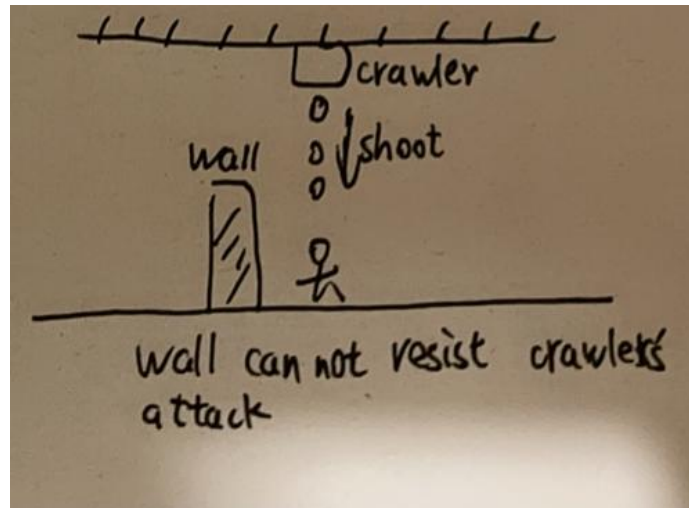 crawler
shoot
wall
wall can not resist crawler's
attack